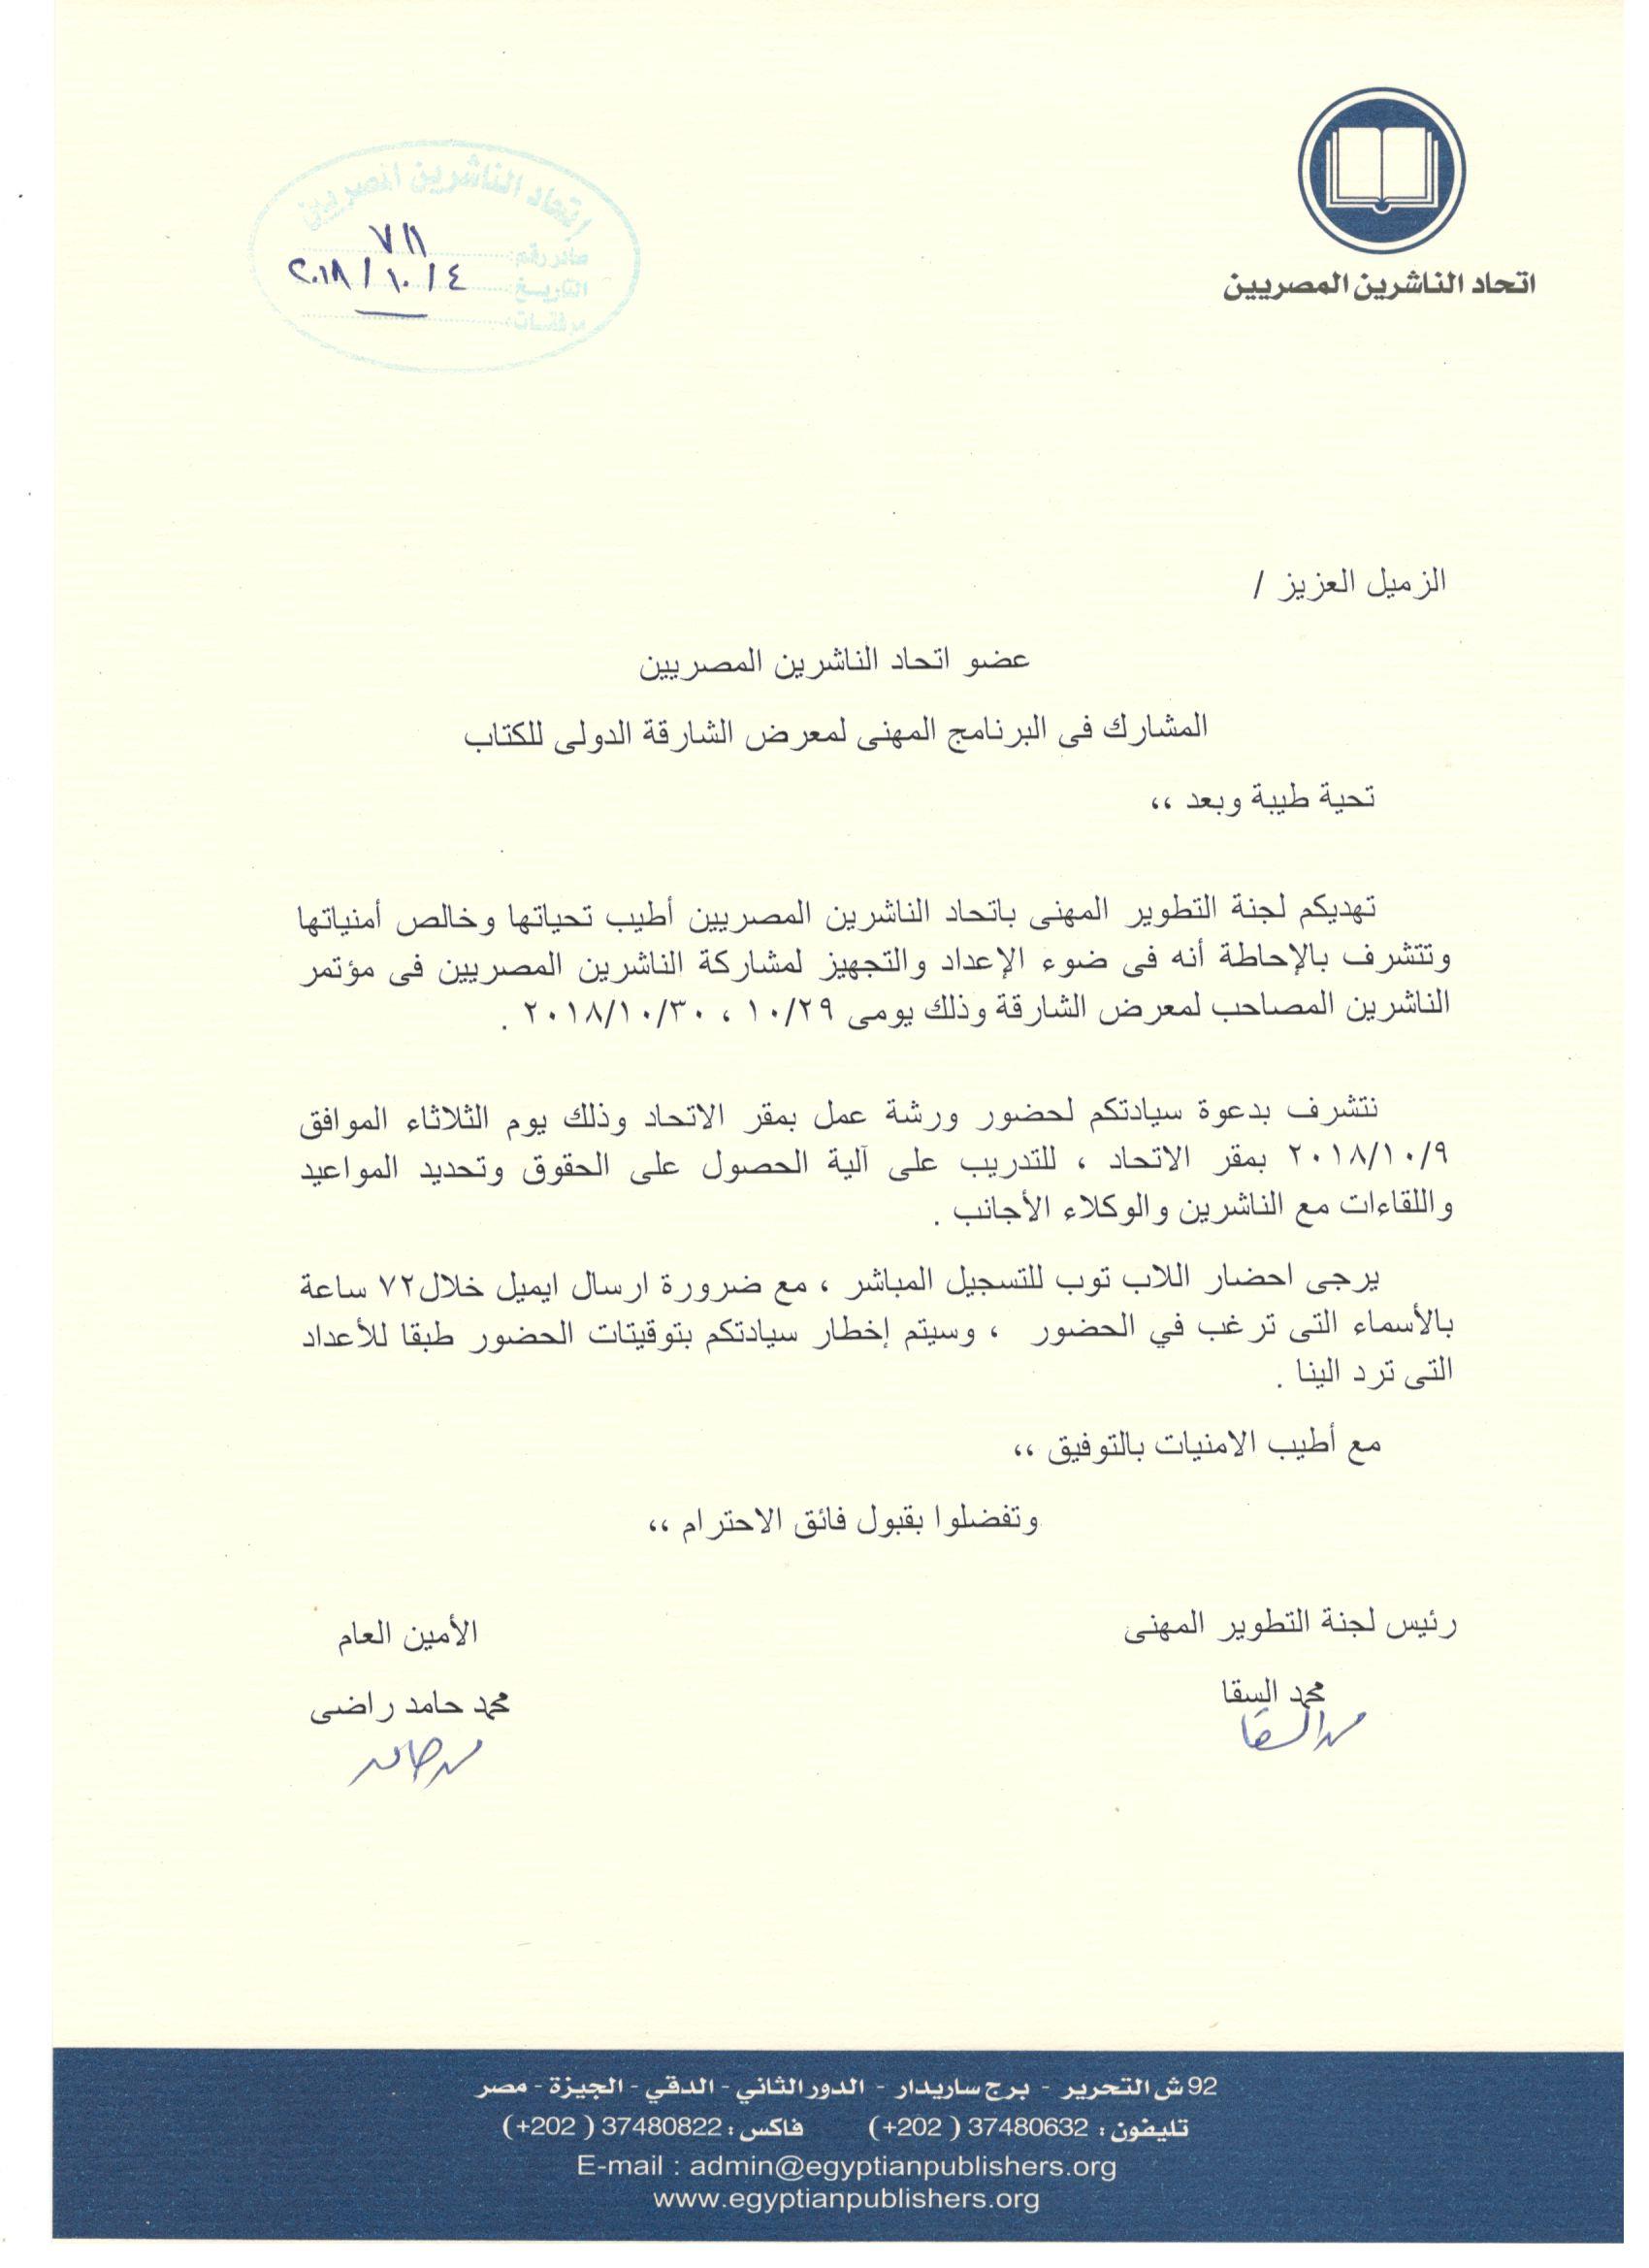 اتحاد الناشرين المصريين
اتحاد الناشرين المصريين
صادر رقم: ٧١١
التاريخ: ٤ / ١٠ / ٢٠١٨
مرفقات:
الزميل العزيز /
عضو اتحاد الناشرين المصريين
المشارك فى البرنامج المهنى لمعرض الشارقة الدولى للكتاب
تحية طيبة وبعد ،،
تهديكم لجنة التطوير المهنى باتحاد الناشرين المصريين أطيب تحياتها وخالص أمنياتها
وتتشرف بالإحاطة أنه فى ضوء الإعداد والتجهيز لمشاركة الناشرين المصريين فى مؤتمر
الناشرين المصاحب لمعرض الشارقة وذلك يومى ١٠/٢٩ ، ٢٠١٨/١٠/٣٠ .
نتشرف بدعوة سيادتكم لحضور ورشة عمل بمقر الاتحاد وذلك يوم الثلاثاء الموافق
٢٠١٨/١٠/٩ بمقر الاتحاد ، للتدريب على آلية الحصول على الحقوق وتحديد المواعيد
واللقاءات مع الناشرين والوكلاء الأجانب .
يرجى احضار اللاب توب للتسجيل المباشر ، مع ضرورة ارسال ايميل خلال٧٢ ساعة
بالأسماء التى ترغب في الحضور ، وسيتم إخطار سيادتكم بتوقيتات الحضور طبقا للأعداد
التى ترد الينا .
مع أطيب الامنيات بالتوفيق ،،
وتفضلوا بقبول فائق الاحترام ،،
رئيس لجنة التطوير المهنى
محمد السقا
محمد السقا
الأمين العام
محمد حامد راضى
محمد حامد
92 ش التحرير - برج ساريدار - الدور الثاني - الدقي - الجيزة - مصر
تليفون : 37480632 ( 202+) فاكس : 37480822 ( 202+)
E-mail : admin@egyptianpublishers.org
www.egyptianpublishers.org